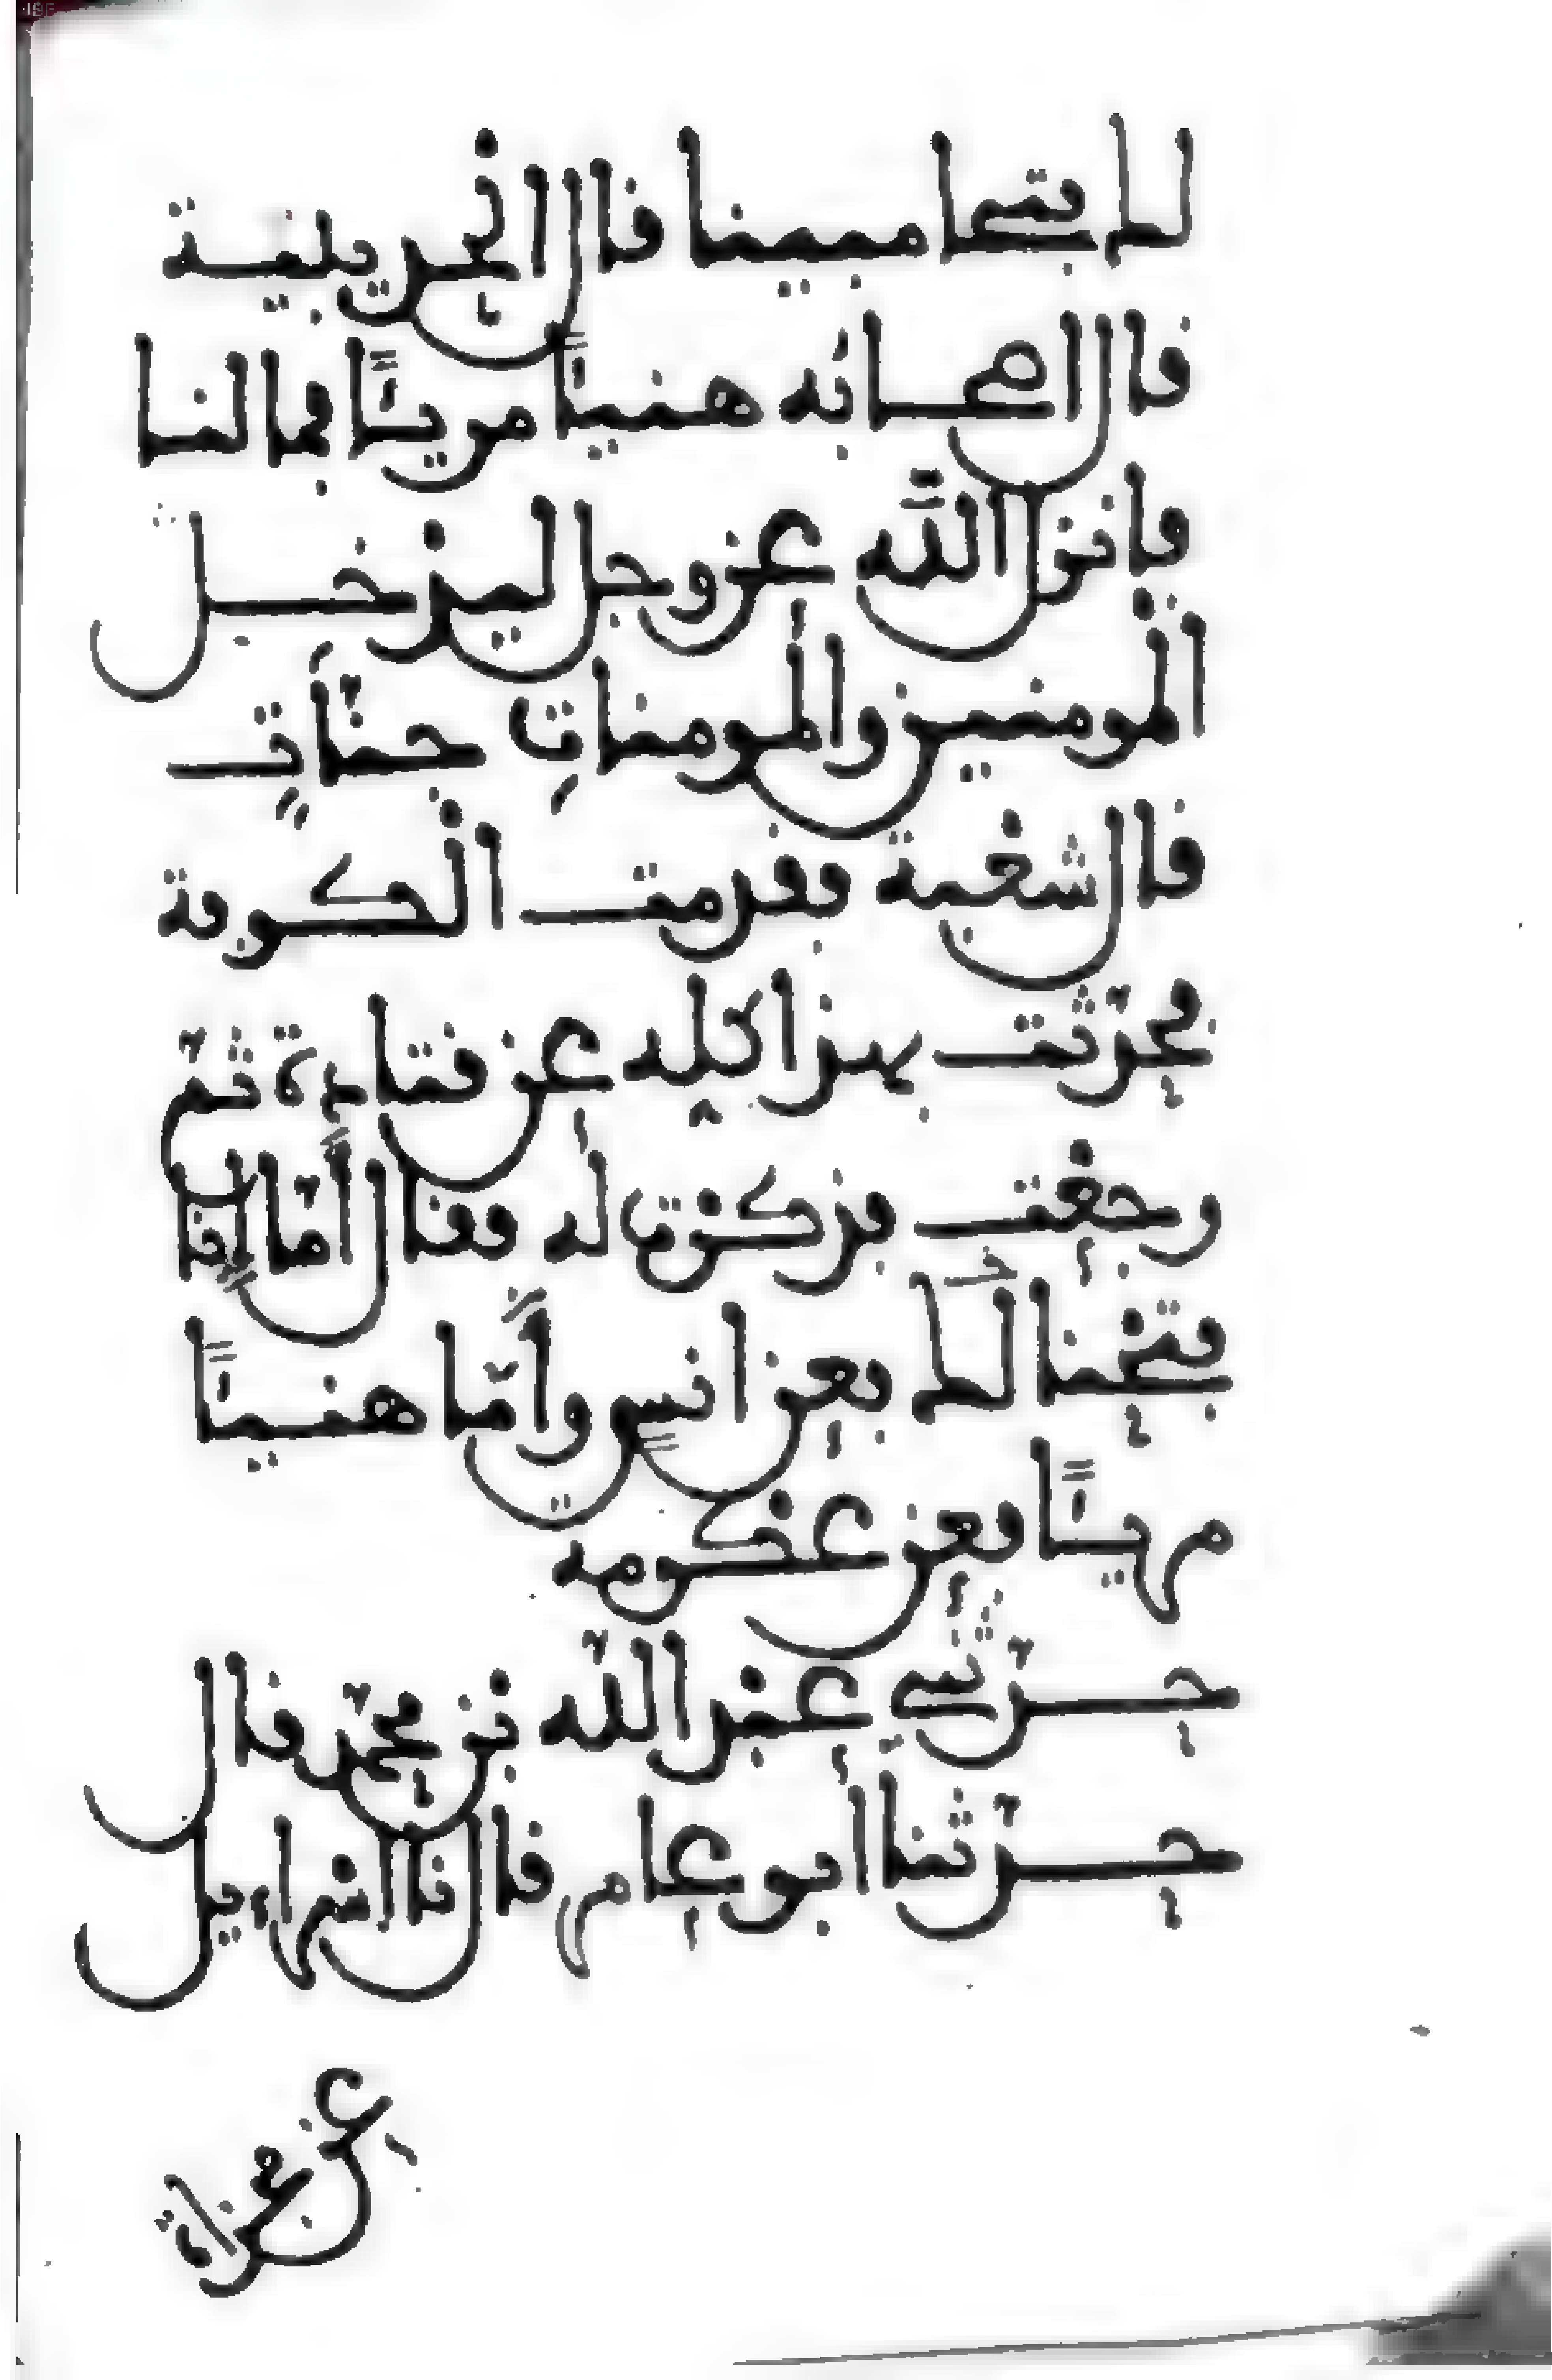 لك فتحا مبينا قال الحديبية
قال اصحابه هنيـًٔا مريـًٔا فما لنا
فانزل اللّٰه عز وجل ليدخل
المومنين والمومناتِ جنّاتٍ
قال شعبة فقدمت الكوفة
فحدّثت بهذا كلِه عن قتادة ثمّ
رجعت فذكرت له فقال أمّا إنا
فتحنا لك فعن انسٍ وأمّا هنيـًٔا
مريـًٔا فعن عكرمه
حدّثني عبد اللّه بن محمّد قال
حدّثنا أبو عامر قال نا اسراءيل
عن مجزاة